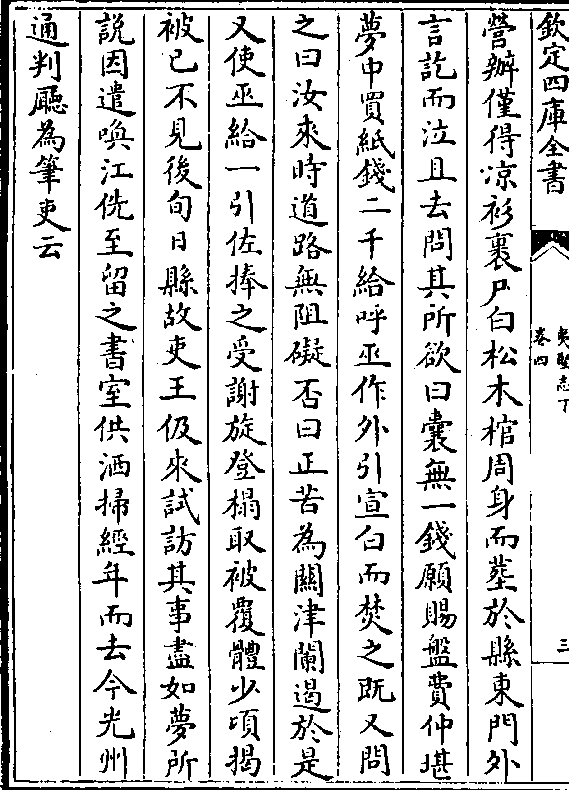 欽定四庫全書
夷堅志丁
卷四
三
營辦僅得凉衫裹尸白松木棺周身而塟於縣東門外
言訖而泣且去問其所欲曰囊無一錢願賜盤費仲堪
夢中買紙錢二千給呼巫作外引宣白而焚之既又問
之曰汝來時道路無阻礙否曰正苦為關津闌遏於是
又使巫給一引佐捧之受謝旋登榻取被覆體少頃揭
被已不見後旬日縣故吏王伋來試訪其事盡如夢所
說因遣喚江侁至留之書室供洒掃經年而去今光州
通判廳為筆吏云